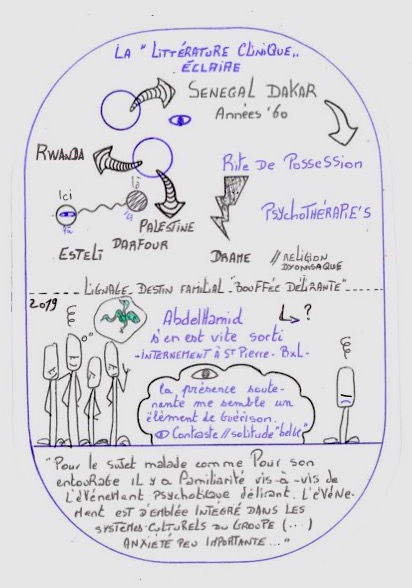 LA "LITTÉRATURE CLINIQUE„
ÉCLAIRE
SENEGAL DAKAR
Années '60
RWANDA
RITE DE POSSESSION
Ici
là
là
ici
PSYCHOTHÉRAPIE'S
PALESTINE
DARFOUR
ESTELI
DRAME
// RELIGION
DYONISAQUE
LIGNAGE_DESTIN FAMILIAL_"BOUFFÉE DÉLIRANTE"
2019
AbdelHamid
s'en est vite sorti
-INTERNEMENT À ST PIERRE - BXL-
?
la présence soute-
nante me semble un
élément de Guérison.
Contaste // solitude "belge"
"Pour le sujet malade comme Pour son
entourage il y a familiarité vis-à-vis de
l'événement psychotique délirant. L'événe-
ment est d'emblée intégré dans les
systèmes culturels du groupe (...)
Anxiété peu importante..."